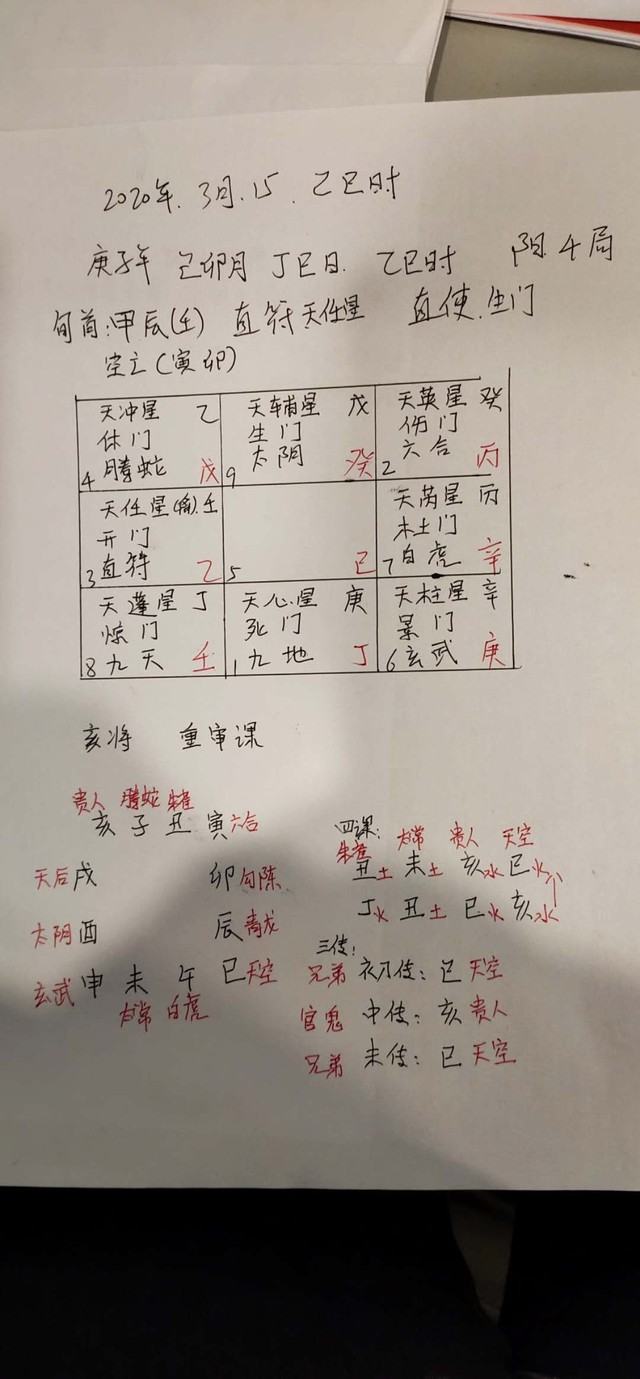 2020年.3月.15.乙巳时
庚子年 己卯月 丁巳日. 乙巳时 阳4局
旬首:甲辰(壬) 直符天任星 直使.生门
空亡(寅卯)
天冲星 乙 天辅星 戊 天英星 癸
休门 生门 伤门
4腾蛇 戊 9太阴 癸 2六合 丙
天任星(禽).壬 天芮星 丙
开门 杜门
3直符 乙 5 己 7白虎 辛
天蓬星 丁 天心星 庚 天柱星 辛
惊门 死门 景门
8九天 壬 1九地 丁 6玄武 庚
亥将 重审课
贵人 腾蛇 朱雀
亥子丑寅六合
天后戌 卯勾陈
太阴酉 辰青龙
玄武申未午巳天空
太常 白虎
四课: 太常 贵人 天空
朱雀
丑土 未土 亥水 巳火
丁火 丑土 巳火 亥水
三传:
兄弟 初传:巳 天空
官鬼 中传:亥 贵人
兄弟 末传:巳 天空